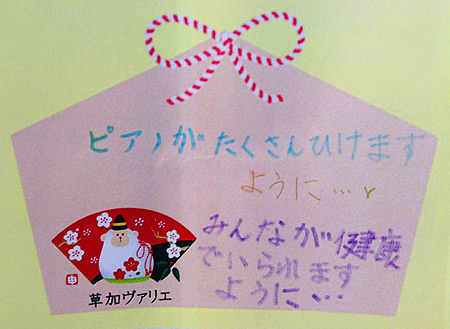 ピアノがたくさんひけます
ように…、
みんなが健康
でいられます
ように、…
申
草加ヴァリエ